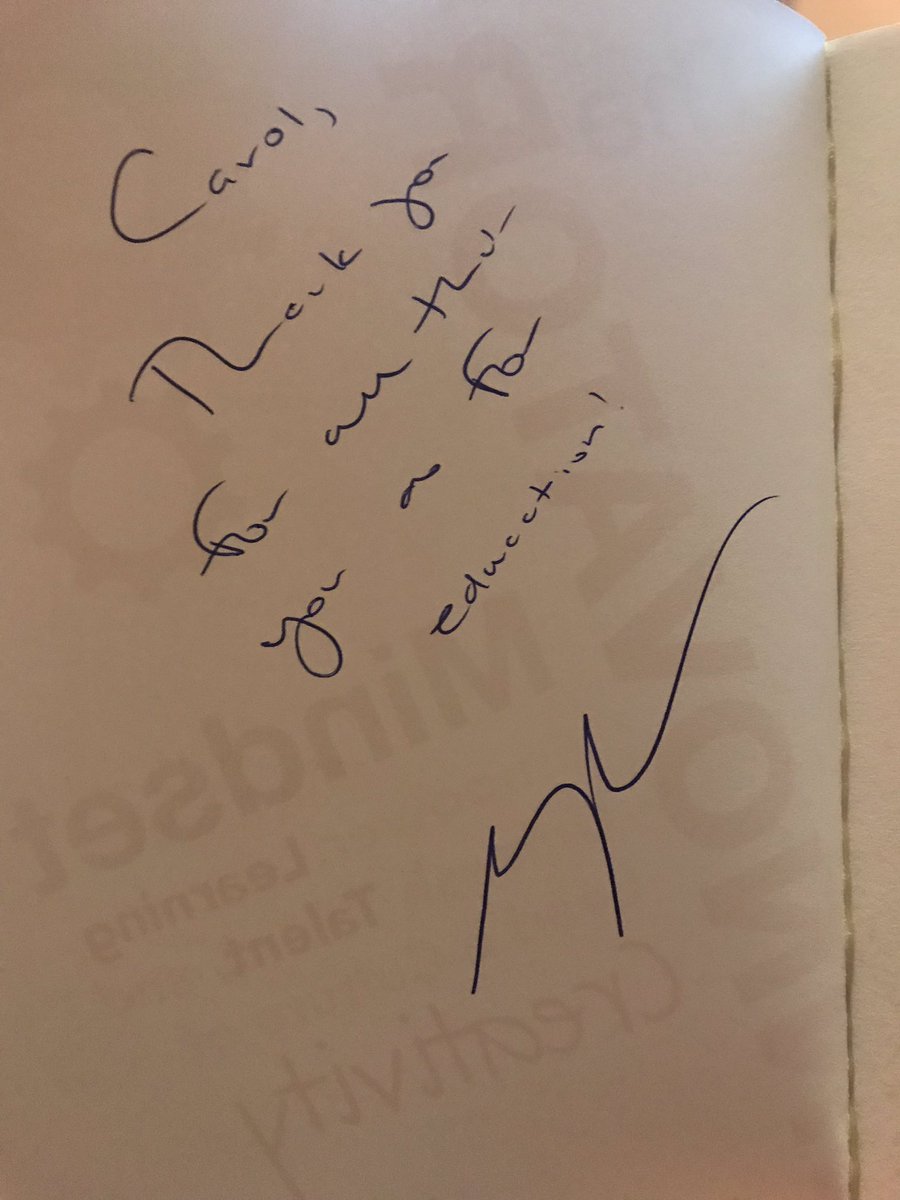 Carol,
Thank you
for all that
you do for
education!
Mindset
Learning
Talent
Creativity